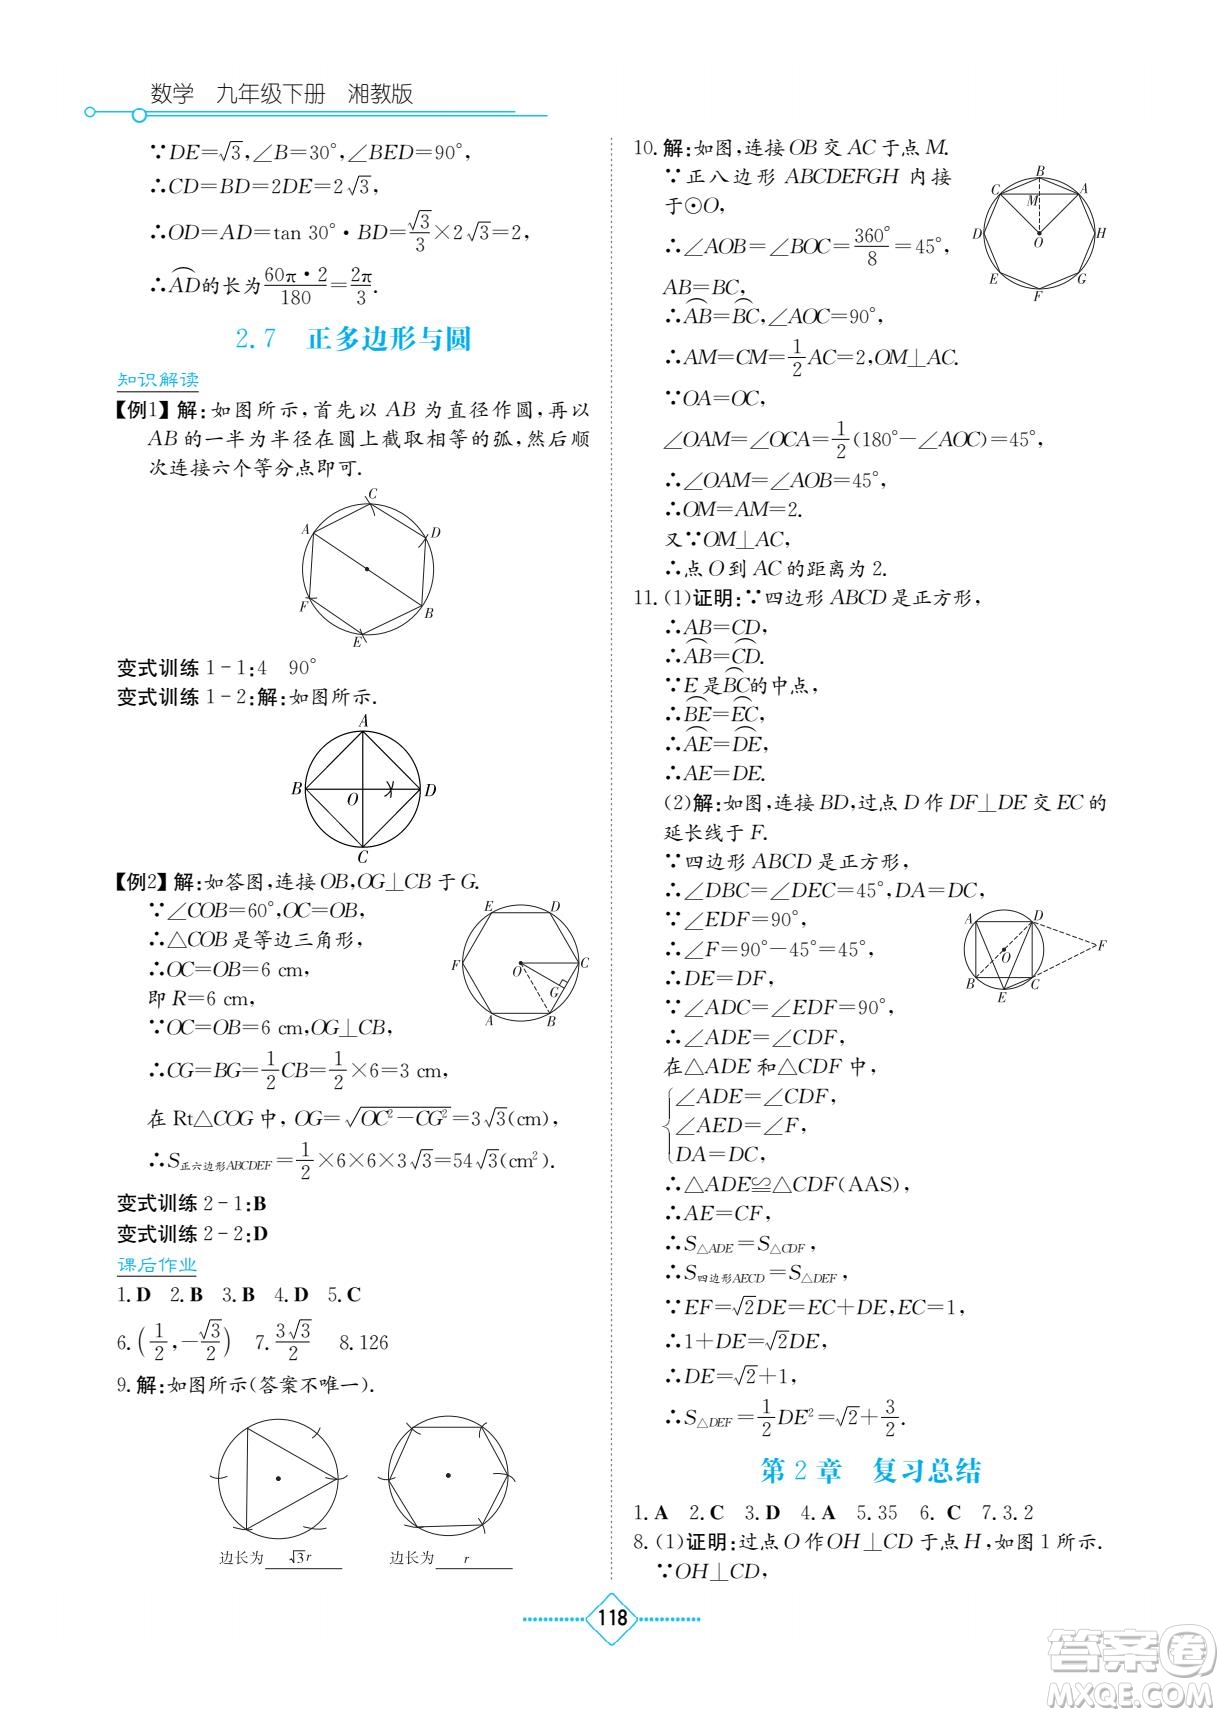 数学　九年级下册　湘教版
∵DE=√3,∠B=30°,∠BED=90°,
∴CD=BD=2DE=2√3,
∴OD=AD=tan 30°·BD=√3/3×2√3=2,
∴⌒AD的长为60π·2/180=2π/3.
2.7　正多边形与圆
知识解读
【例1】解:如图所示,首先以 AB 为直径作圆,再以
AB 的一半为半径在圆上截取相等的弧,然后顺
次连接六个等分点即可.
C
A
D
F
B
E
变式训练 1-1:4　90°
变式训练 1-2:解:如图所示.
A
B
O
D
C
【例2】解:如答图,连接OB,OG⊥CB于G.
∵∠COB=60°,OC=OB,
∴△COB 是等边三角形,
∴OC=OB=6 cm,
即 R=6 cm,
∵OC=OB=6 cm,OG⊥CB,
∴CG=BG=1/2CB=1/2×6=3 cm,
在 Rt△COG 中,OG=√(OC²-CG²)=3√3(cm),
∴S正六边形ABCDEF=1/2×6×6×3√3=54√3(cm²).
E
D
F
O
C
G
A
B
变式训练 2-1:B
变式训练 2-2:D
课后作业
1.D　2.B　3.B　4.D　5.C
6.(1/2,-√3/2)　7.3√3/2　8.126
9.解:如图所示(答案不唯一).
边长为 √3r
边长为 r
10.解:如图,连接OB交AC于点M.
∵正八边形 ABCDEFGH 内接
于⊙O,
∴∠AOB=∠BOC=360°/8=45°,
AB=BC,
∴⌒AB=⌒BC,∠AOC=90°,
∴AM=CM=1/2AC=2,OM⊥AC.
∵OA=OC,
∠OAM=∠OCA=1/2(180°-∠AOC)=45°,
∴∠OAM=∠AOB=45°,
∴OM=AM=2.
又∵OM⊥AC,
∴点O到AC的距离为2.
B
C
A
M
D
O
H
E
G
F
11.(1)证明:∵四边形ABCD是正方形,
∴AB=CD,
∴⌒AB=⌒CD.
∵E是⌒BC的中点,
∴⌒BE=⌒EC,
∴⌒AE=⌒DE,
∴AE=DE.
(2)解:如图,连接BD,过点D作DF⊥DE交EC的
延长线于F.
∵四边形ABCD是正方形,
∴∠DBC=∠DEC=45°,DA=DC,
∵∠EDF=90°,
∴∠F=90°-45°=45°,
∴DE=DF,
∵∠ADC=∠EDF=90°,
∴∠ADE=∠CDF,
在△ADE和△CDF中,
{∠ADE=∠CDF,
∠AED=∠F,
DA=DC,
∴△ADE≌△CDF(AAS),
∴AE=CF,
∴S△ADE=S△CDF,
∴S四边形AECD=S△DEF,
∵EF=√2DE=EC+DE,EC=1,
∴1+DE=√2DE,
∴DE=√2+1,
∴S△DEF=1/2DE²=√2+3/2.
A
D
F
O
B
C
E
第2章　复习总结
1.A　2.C　3.D　4.A　5.35　6.C　7.3.2
8.(1)证明:过点O作OH⊥CD于点H,如图1所示.
∵OH⊥CD,
118
答案卷
MXQE.COM